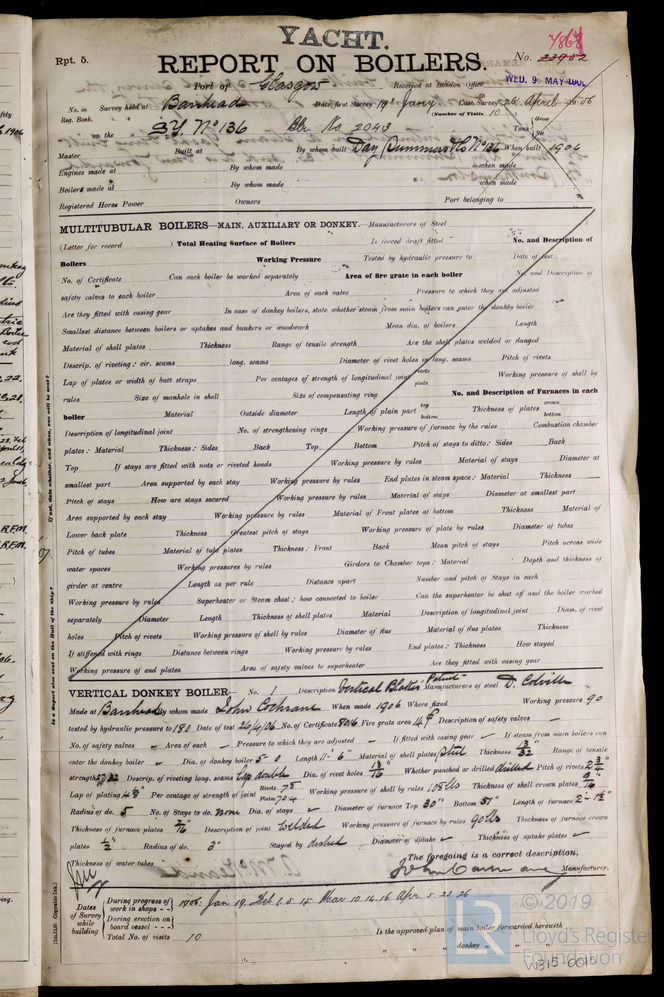 YACHT.
Rpt. 5.
REPORT ON BOILERS.
No. 23982
7868
Port of Glasgow
Received at London Office WED. 9 MAY 1906
No. in Survey held at Barrhead Date, first Survey 19th Jany Last Survey 26 April 1906
Reg. Book.
(Number of Visits 10)
on the S.Y. No 136 Blr. No. 2043 Tons Gross Net
Master Built at By whom built Day Summers & Co No 136 When built 1906
Engines made at By whom made when made
Boilers made at By whom made when made
Registered Horse Power Owners Port belonging to
MULTITUBULAR BOILERS—MAIN, AUXILIARY OR DONKEY.—Manufacturers of Steel
(Letter for record ) Total Heating Surface of Boilers Is forced draft fitted No. and Description of
Boilers Working Pressure Tested by hydraulic pressure to Date of test
No. of Certificate Can each boiler be worked separately Area of fire grate in each boiler No. and Description of
safety valves to each boiler Area of each valve Pressure to which they are adjusted
Are they fitted with easing gear In case of donkey boilers, state whether steam from main boilers can enter the donkey boiler
Smallest distance between boilers or uptakes and bunkers or woodwork Mean dia. of boilers Length
Material of shell plates Thickness Range of tensile strength Are the shell plates welded or flanged
Descrip. of riveting: cir. seams long. seams Diameter of rivet holes in long. seams Pitch of rivets
Lap of plates or width of butt straps Per centages of strength of longitudinal joint rivets plates Working pressure of shell by
rules Size of manhole in shell Size of compensating ring No. and Description of Furnaces in each
boiler Material Outside diameter Length of plain part top bottom Thickness of plates crown bottom
Description of longitudinal joint No. of strengthening rings Working pressure of furnace by the rules Combustion chamber
plates: Material Thickness: Sides Back Top Bottom Pitch of stays to ditto: Sides Back
Top If stays are fitted with nuts or riveted heads Working pressure by rules Material of stays Diameter at
smallest part Area supported by each stay Working pressure by rules End plates in steam space: Material Thickness
Pitch of stays How are stays secured Working pressure by rules Material of stays Diameter at smallest part
Area supported by each stay Working pressure by rules Material of Front plates at bottom Thickness Material of
Lower back plate Thickness Greatest pitch of stays Working pressure of plate by rules Diameter of tubes
Pitch of tubes Material of tube plates Thickness: Front Back Mean pitch of stays Pitch across wide
water spaces Working pressures by rules Girders to Chamber tops: Material Depth and thickness of
girder at centre Length as per rule Distance apart Number and pitch of Stays in each
Working pressure by rules Superheater or Steam chest; how connected to boiler Can the superheater be shut off and the boiler worked
separately Diameter Length Thickness of shell plates Material Description of longitudinal joint Diam. of rivet
holes Pitch of rivets Working pressure of shell by rules Diameter of flue Material of flue plates Thickness
If stiffened with rings Distance between rings Working pressure by rules End plates: Thickness How stayed
Working pressure of end plates Area of safety valves to superheater Are they fitted with easing gear
VERTICAL DONKEY BOILER— No. 1 Description Vertical Blake's Patent Manufacturers of steel D. Colville
Made at Barrhead By whom made John Cochrane When made 1906 Where fixed Working pressure 90
tested by hydraulic pressure to 180 Date of test 26/4/06 No. of Certificate 8016 Fire grate area 4 Description of safety valves
No. of safety valves Area of each Pressure to which they are adjusted If fitted with easing gear If steam from main boilers can
enter the donkey boiler Dia. of donkey boiler 5-0 Length 11-6" Material of shell plates Steel Thickness 13/32 Range of tensile
strength 27/32 Descrip. of riveting long. seams Lap double Dia. of rivet holes 13/16" Whether punched or drilled drilled Pitch of rivets 2 3/4"
Lap of plating 4 1/8" Per centage of strength of joint Rivets 75 Plates 70.4 Working pressure of shell by rules 108 lbs Thickness of shell crown plates 9/16"
Radius of do. 5 No. of Stays to do. none Dia. of stays Diameter of furnace Top 30" Bottom 51" Length of furnace 2'-1 1/2"
Thickness of furnace plates 7/16" Description of joint Welded Working pressure of furnace by rules 90 lbs Thickness of furnace crown
plates 1/2" Radius of do. 3" Stayed by dished Diameter of uptake Thickness of uptake plates
Thickness of water tubes
The foregoing is a correct description,
John Cochrane Manufacturer.
Dates of Survey while building
During progress of work in shops - - 1906. Jan 19. Feb 1. 5. 15 Mar 10. 14. 16 Apr. 5. 23. 26
During erection on board vessel - - -
Total No. of visits 10
Is the approved plan of main boiler forwarded herewith
" " " donkey " " "
If not, state whether, and when, one will be sent?
Is a Report also sent on the Hull of the Ship?
© 2019
Lloyd's Register
Foundation
LR
W315-0015